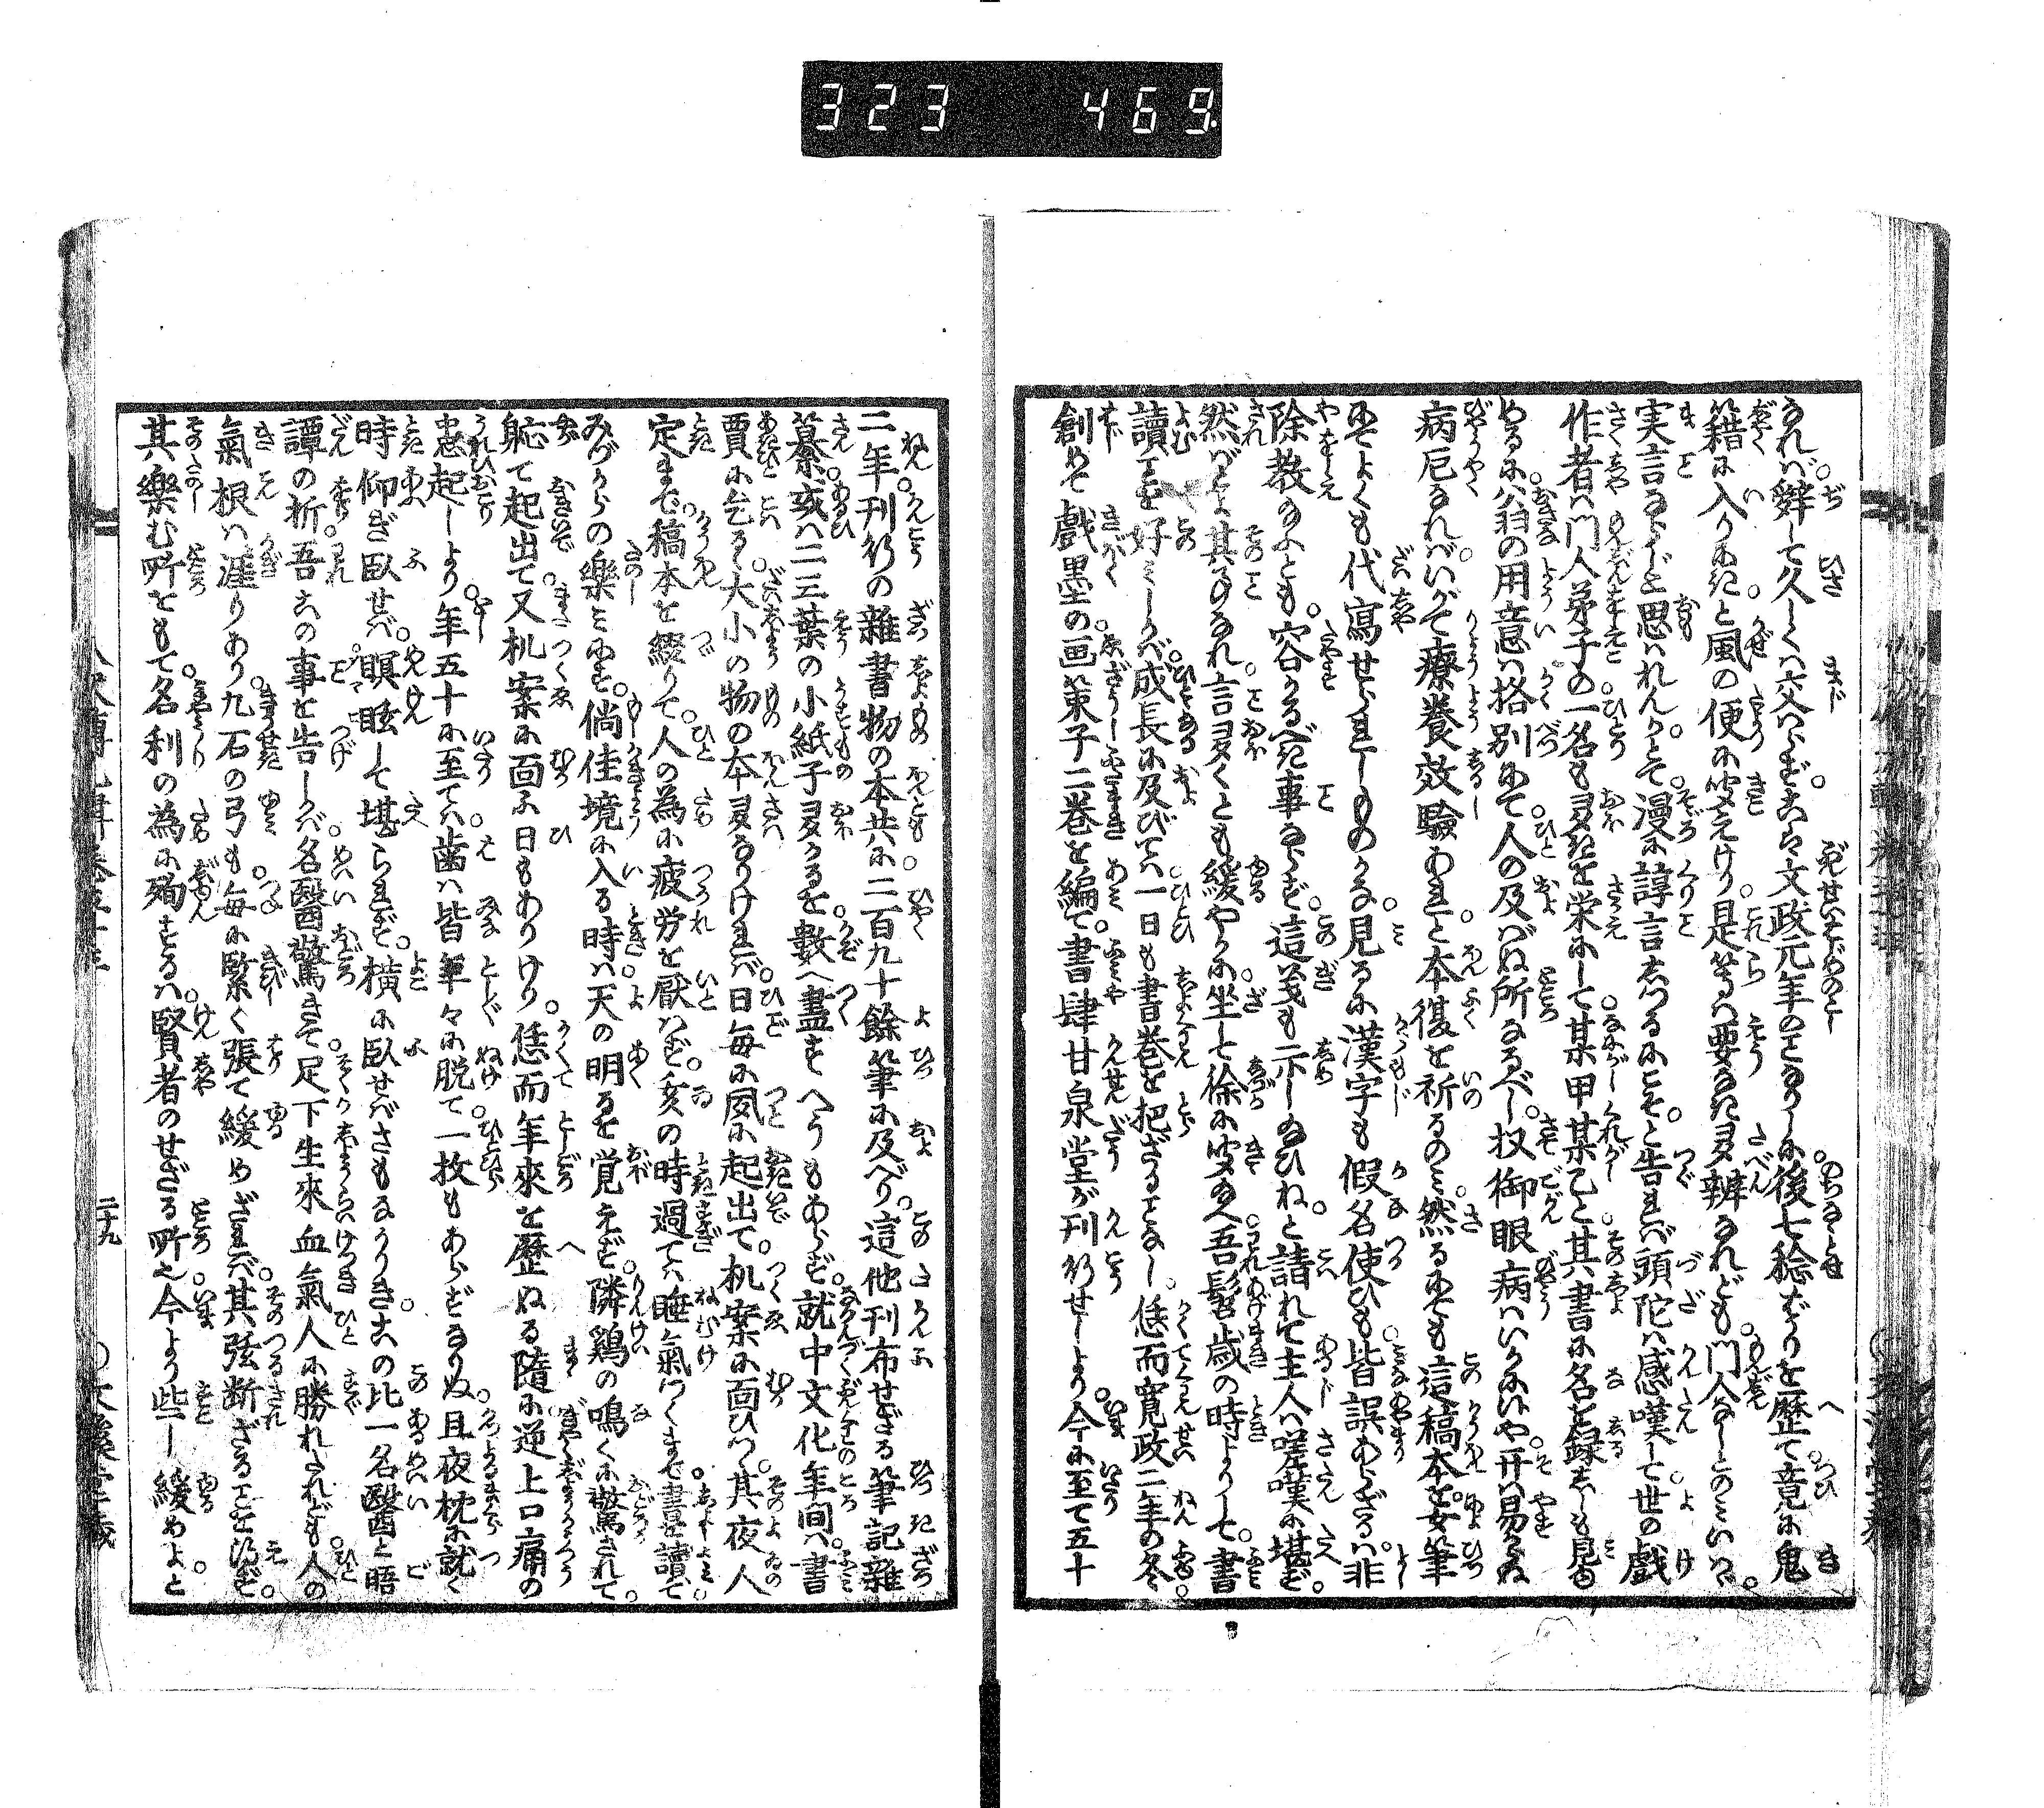 323 469
なれば辤して久しくは交はらず。こは文政元年の事なりしに後七稔ばかりを歴て竟に鬼
籍に入りにきと風の便に聞えけり是等は要なき多辨なれども門人なしとのみいはゞ
実言ならじと思はれんかとて漫に諄言しつるにこそと告れば頭陀は感嘆して世の戯
作者は門人弟子の一名も多きを栄にして某甲某乙と其書に名を録ししも見
めるに公羽の用意は格別にて人の及ばぬ所なるべし扨御眼病はいかにぞや开は易からぬ
病厄なればいかで療養效驗あれと本復を祈るのみ然るにても這稿本を女筆
にてよくも代寫せられしものかな見るに漢字も假名使ひも皆誤あらざるは非如
除教なふとも容易かるべき事ならず這義も示し給ひねと請れて主人は嗟嘆に堪ず
然ばとよ其事なれ言多くとも緩やかに坐して徐に聞給へ吾髫歳の時よりして書を
讀ことを好みしかば成長に及びては一日も書巻を把ざることなし恁而寛政二年の冬
創めて戲墨の画策子二巻を編て書肆甘泉堂が刊行せしより今に至て五十
二年刊行の雜書物の本共に二百九十餘筆に及べり這他刊布せざる筆記雜
纂或は二三葉の小紙子多かるを數へ盡すべうもあらず就中文化年間は書
賈に乞るゝ大小の物の本多かりければ日毎に夙に起出て机案に面ひつゝ其夜人
定まで稿本を綴りて人の為に疲労を厭はず亥の時過ては睡氣つくまで書を讀て
みづからの樂みにす倘佳境に入る時は天の明るを覚えず隣鶏の鳴くに驚されて
恥て起出て又机案に面ふ日もありけり恁而年來を歴ぬる隨に逆上口痛の
患起しより年五十に至ては齒は皆年々に脱て一枚もあらずなりぬ且夜枕に就く
時仰ぎ臥せば瞑眩して堪られず横に臥せばさもなかりきこの比一名醫と晤
譚の折吾この事を告しかば名醫驚きて足下生來血氣人に勝れたれども人の
氣根は涯りあり九石の弓も毎に緊く張て緩めざれば其弦断ざることを得ず
其樂む所をもて名利の為に殉するは賢者のせざる所也今より些し緩めよと
二十九